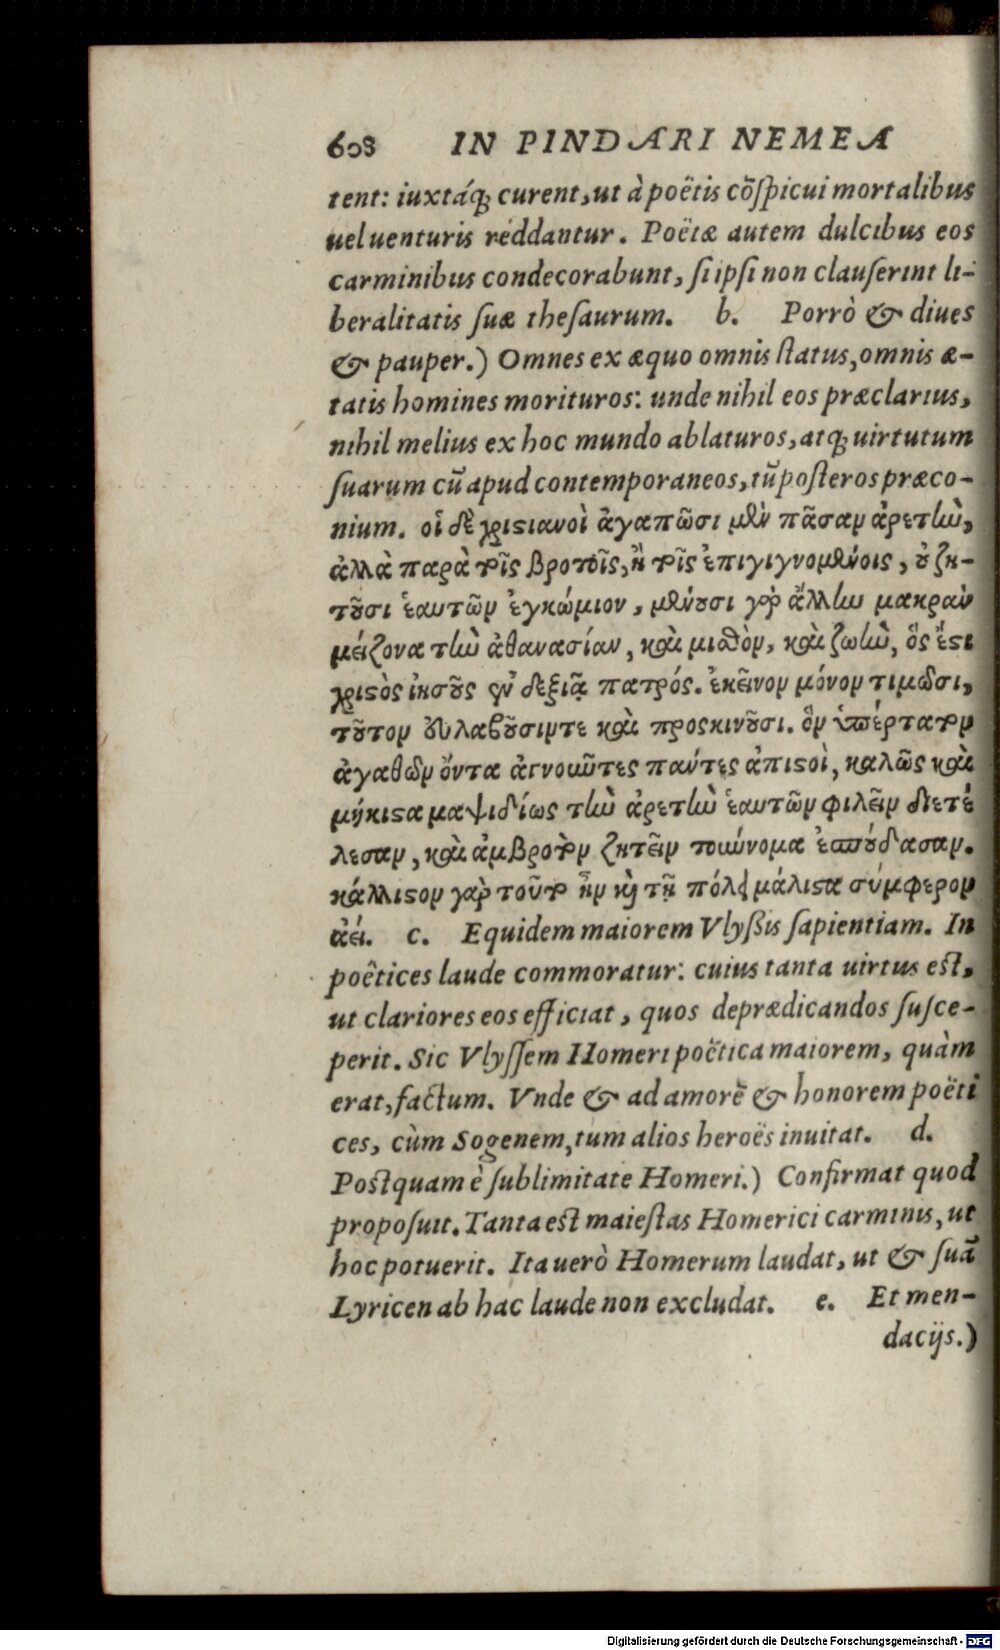 608 IN PINDARI NEMEA
tent: iuxtáq; curent, ut à poëtis cõſpicui mortalibus
uel uenturis reddantur. Poëtæ autem dulcibus eos
carminibus condecorabunt, ſi ipſi non clauſerint li-
beralitatis ſuæ theſaurum. b. Porrò & diues
& pauper.) Omnes ex æquo omnis ſtatus, omnis æ-
tatis homines morituros: unde nihil eos præclarius,
nihil melius ex hoc mundo ablaturos, atq; uirtutum
ſuarum cũ apud contemporaneos, tũ poſteros præco-
nium. οἱ δὲ χριϛιανοὶ ἀγαπῶσι μὲν πᾶσαν ἀρετὴν,
ἀλλὰ παρὰ τοῖς βροτοῖς, ἢ τοῖς ἐπιγιγνομένοις, ȣ ζη-
τȣ͂σι ἑαυτῶν ἐγκώμιον, μένȣσι γὰρ ἄλλην μακρὰν
μείζονα τὴν ἀθανασίαν, καὶ μιϑὸν, καὶ ζωὴν, ὅς ἔϛι
χριϛὸς ἰησȣ͂ς ἐν δεξιᾷ πατρός. ἐκεῖνον μόνον τιμῶσι,
τȣ͂τον ἐυλαβȣ͂σιντε καὶ προσκινȣ͂σι. ὃν ὑπέρτατον
ἀγαθῶν ὄντα ἀγνοοῦντες πάντες ἀπιϛοὶ, καλῶς καὶ
μήκιϛα μαψιδίως τὴν ἀρετὴν ἑαυτῶν φιλεῖν διετέ
λεσαν, καὶ ἀμβροτὸν ζητεῖν τοὐώνομα ἐσπȣ́δασαν.
κάλλιϛον γὰρ τοῦτο ἦν καὶ τῇ πόλει μάλιϛα σύμφερον
ἀεί. c. Equidem maiorem Vlyſsis ſapientiam. In
poêtices laude commoratur: cuius tanta uirtus eſt,
ut clariores eos efficiat, quos deprædicandos ſuſce-
perit. Sic Vlyſſem Homeri poëtica maiorem, quàm
erat, factum. Vnde & ad amorẽ & honorem poëti
ces, cùm Sogenem, tum alios heroës inuitat. d.
Poſtquam è ſublimitate Homeri.) Confirmat quod
propoſuit. Tanta eſt maieſtas Homerici carminis, ut
hoc potuerit. Ita uerò Homerum laudat, ut & ſuã
Lyricen ab hac laude non excludat. e. Et men-
dacijs.)
Digitalisierung gefördert durch die Deutsche Forschungsgemeinschaft - DFG